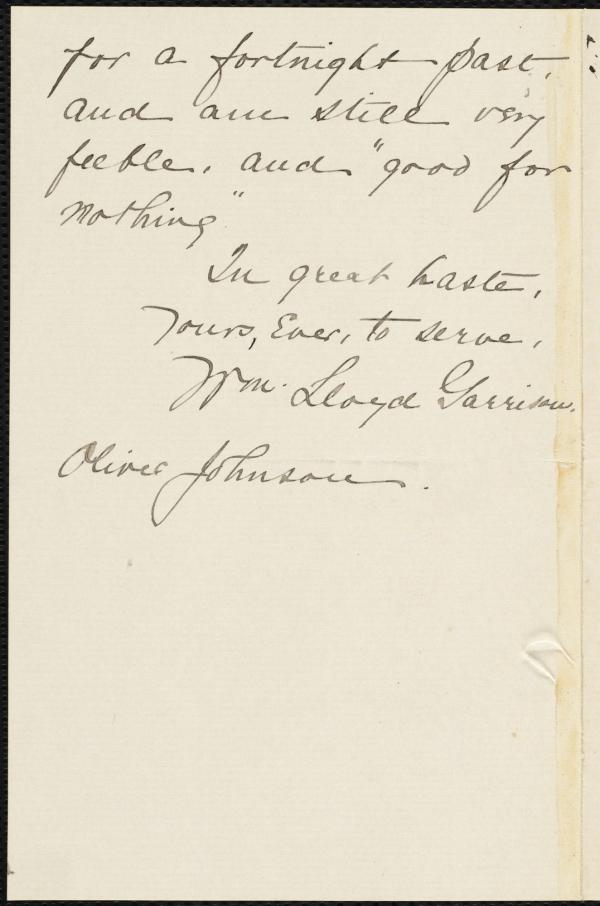 for a fortnight past,
and am still very
feeble, and "good for
nothing"
In great haste,
Yours, Ever, to serve,
Wm. Lloyd Garrison.
Oliver Johnson.